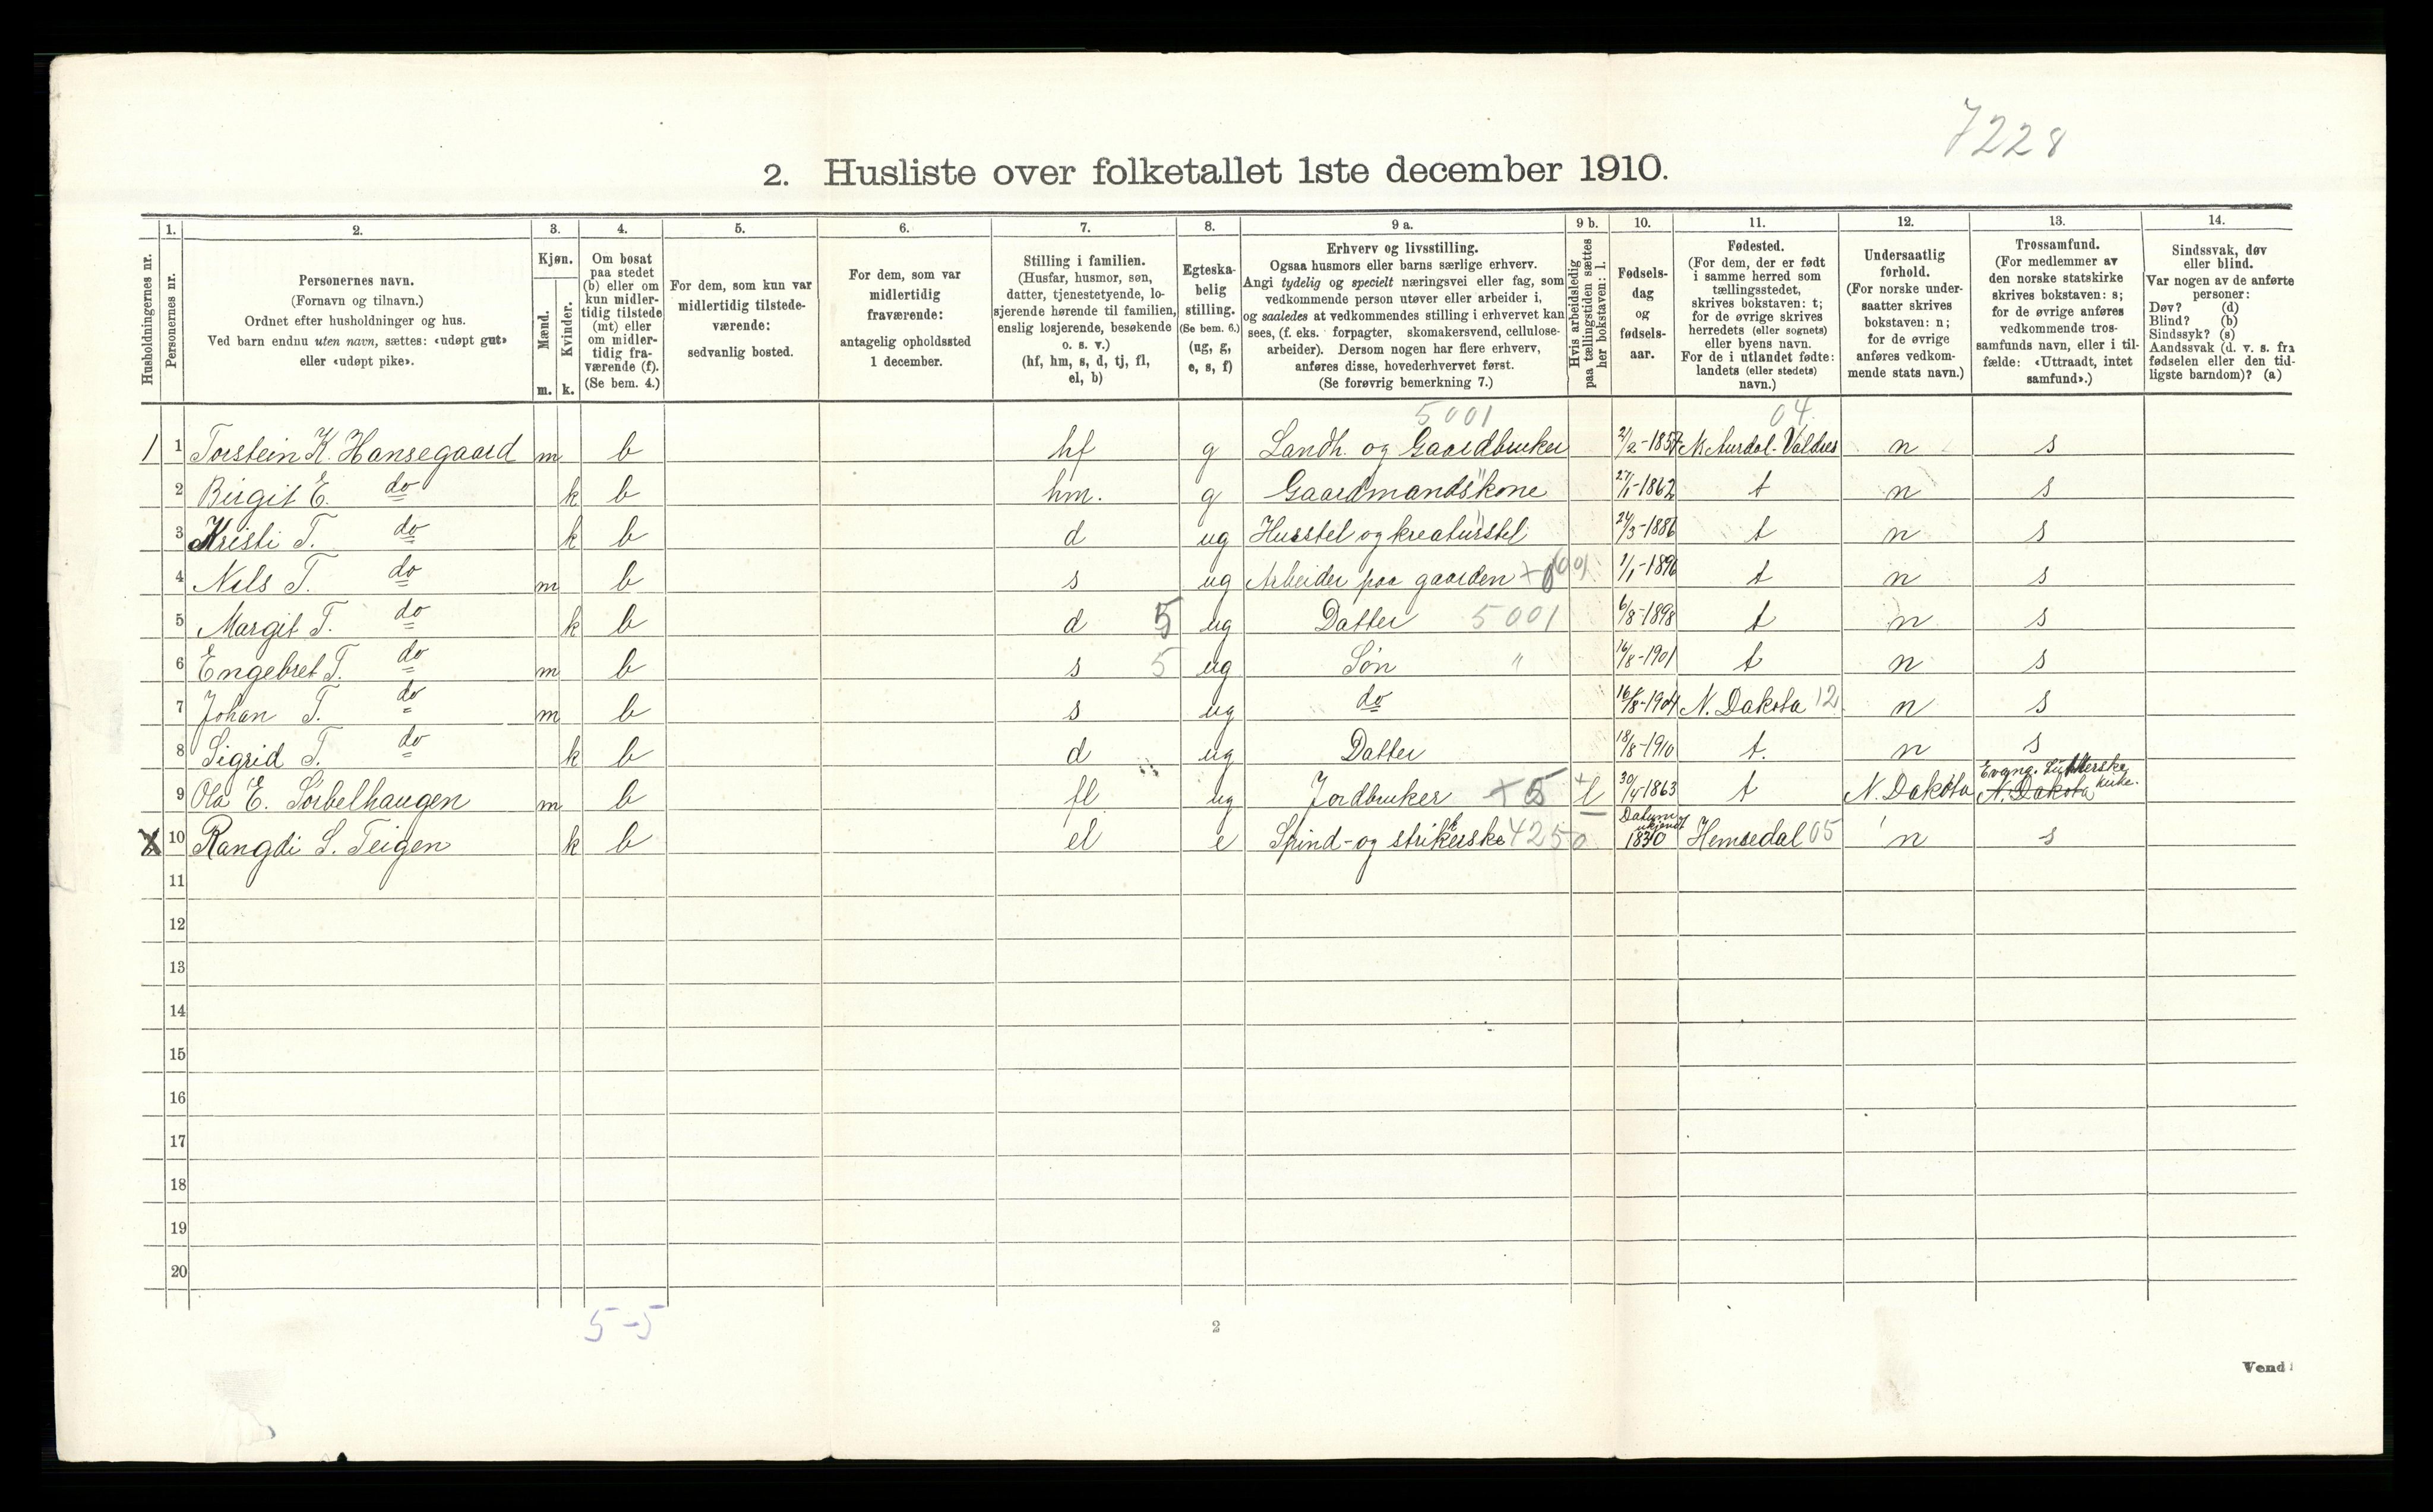 7228
2. Husliste over folketallet 1ste december 1910.
Husholdningernes nr.
1.
Personernes nr.
2.
Personernes navn.
(Fornavn og tilnavn.)
Ordnet efter husholdninger og hus.
Ved barn endnu uten navn, sættes: «udøpt gut»
eller «udøpt pike».
3.
Kjøn.
Mænd.
Kvinder.
m. k.
4.
Om bosat
paa stedet
(b) eller om
kun midler-
tidig tilstede
(mt) eller
om midler-
tidig fra-
værende (f).
(Se bem. 4.)
5.
For dem, som kun var
midlertidig tilstede-
værende:
sedvanlig bosted.
6.
For dem, som var
midlertidig
fraværende:
antagelig opholdssted
1 december.
7.
Stilling i familien.
(Husfar, husmor, søn,
datter, tjenestetyende, lo-
sjerende hørende til familien,
enslig losjerende, besøkende
o. s. v.)
(hf, hm, s, d, tj, fl,
el, b)
8.
Egteska-
belig
stilling.
(Se bem. 6.)
(ug, g,
e, s, f)
9 a.
Erhverv og livsstilling.
Ogsaa husmors eller barns særlige erhverv.
Angi tydelig og specielt næringsvei eller fag, som
vedkommende person utøver eller arbeider i,
og saaledes at vedkommendes stilling i erhvervet kan
sees, (f. eks. forpagter, skomakersvend, cellulose-
arbeider). Dersom nogen har flere erhverv,
anføres disse, hovederhvervet først.
(Se forøvrig bemerkning 7.)
9 b.
Hvis arbeidsledig
paa tællingstiden sættes
her bokstaven: l.
10.
Fødsels-
dag
og
fødsels-
aar.
11.
Fødested.
(For dem, der er født
i samme herred som
tællingsstedet,
skrives bokstaven: t;
for de øvrige skrives
herredets (eller sognets)
eller byens navn.
For de i utlandet fødte:
landets (eller stedets)
navn.)
12.
Undersaatlig
forhold.
(For norske under-
saatter skrives
bokstaven: n;
for de øvrige
anføres vedkom-
mende stats navn.)
13.
Trossamfund.
(For medlemmer av
den norske statskirke
skrives bokstaven: s;
for de øvrige anføres
vedkommende tros-
samfunds navn, eller i til-
fælde: «Uttraadt, intet
samfund».)
14.
Sindssvak, døv
eller blind.
Var nogen av de anførte
personer:
Døv? (d)
Blind? (b)
Sindssyk? (s)
Aandssvak (d. v. s. fra
fødselen eller den tid-
ligste barndom)? (a)
5001 04
1 1 Torstein K. Hansegaard m b hf g Landh. og Gaardbruker 2/2-1857 N. Aurdal-Valdres n s
2 Birgit E. do k b hm. g Gaardmandskone 27/1-1862 t n s
3 Kristi T. do k b d ug Husstel og kreaturstel 24/3-1886 t n s
4 Nils T. do m b s ug Arbeider paa gaarden 1/1-1896 t n s
5 Margit T. do k b d 5 ug Datter 5001 6/8-1898 t n s
6 Engebret T. do m b s 5 ug Søn " 16/8-1901 t n s
7 Johan T. do m b s ug do 16/8-1904 N. Dakota 12 n s
8 Sigrid T. do k b d ug Datter 18/8-1910 t. n s
9 Ola E. Sorbelhaugen m b fl ug Jordbruker +5 l 30/4-1863 t N. Dakota N. Dakota Evang. Lutherske kirke.
X 10 Rangdi S. Teigen k b el e Spind- og strikerske 4250 Datum ukjendt 1830 Hemsedal 05 n s
11
12
13
14
15
16
17
18
19
20
5-5
2
Vend!